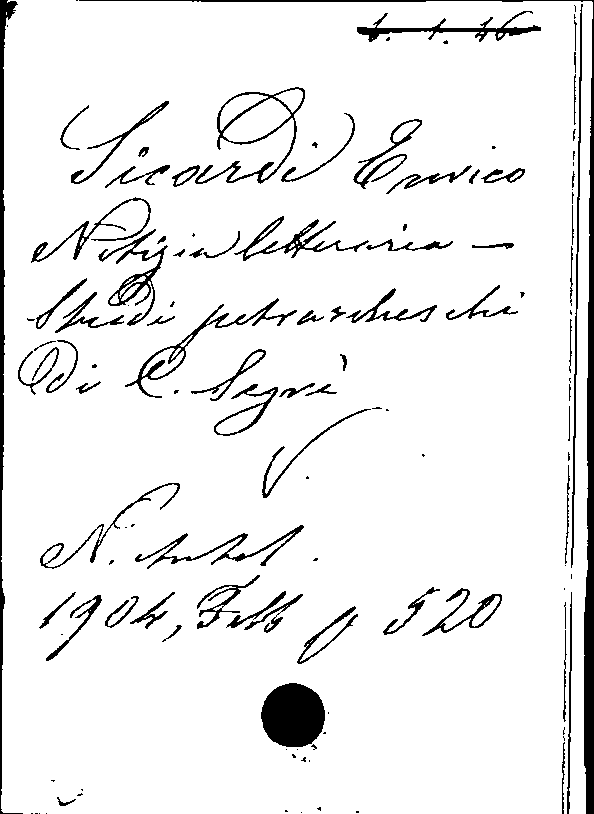 6. 1. 46
Sicardi Enrico
Notizia letteraria —
Studi petrarcheschi
di C. Segrè
V.
N. Antol.
1904, Febb p 520